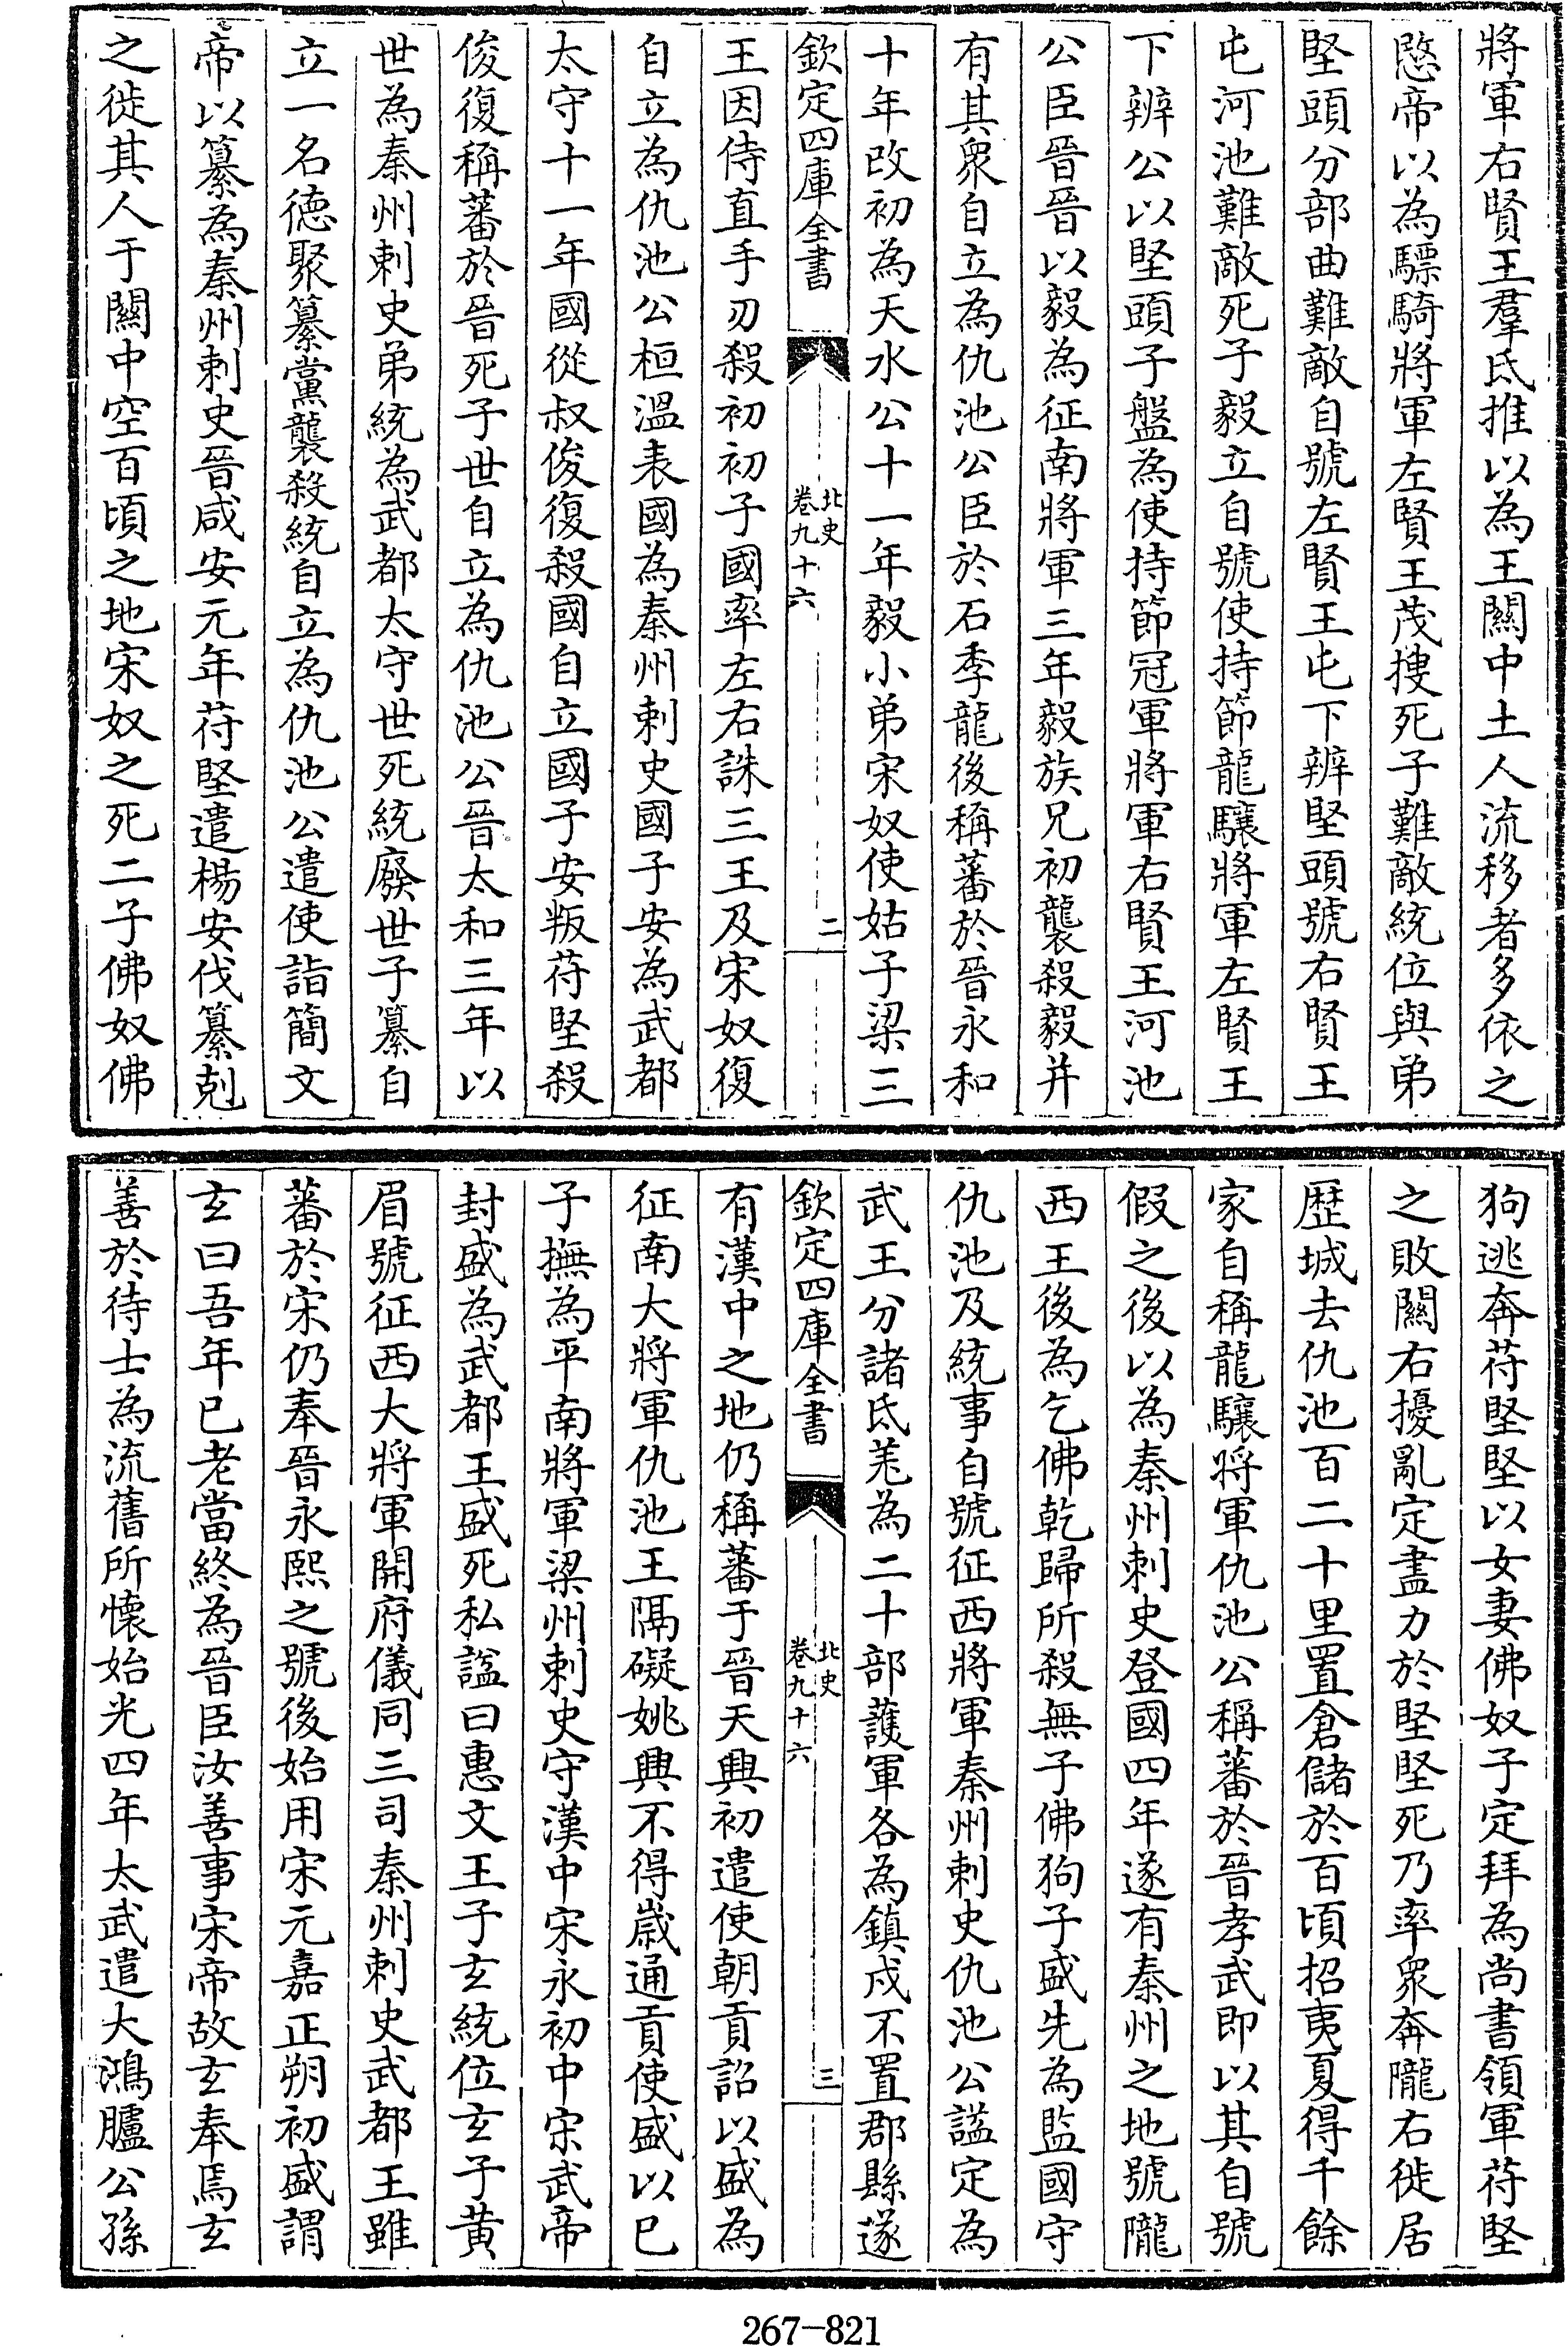 將軍右賢王羣氐推以為王關中土人流移者多依之
愍帝以為驃騎將軍左賢王茂搜死子難敵統位與弟
堅頭分部曲難敵自號左賢王屯下辨堅頭號右賢王
屯河池難敵死子毅立自號使持節龍驤將軍左賢王
下辨公以堅頭子盤為使持節冠軍將軍右賢王河池
公臣晉晉以毅為征南將軍三年毅族兄初襲殺毅并
有其衆自立為仇池公臣於石季龍後稱蕃於晉永和
十年改初為天水公十一年毅小弟宋奴使姑子梁三
欽定四庫全書
北史
卷九十六
二
王因侍直手刃殺初初子國率左右誅三王及宋奴復
自立為仇池公桓溫表國為秦州刺史國子安為武都
太守十一年國從叔俊復殺國自立國子安叛苻堅殺
俊復稱蕃於晉死子世自立為仇池公晉太和三年以
世為秦州刺史弟統為武都太守世死統廢世子纂自
立一名德聚纂黨襲殺統自立為仇池公遣使詣簡文
帝以纂為秦州刺史晉咸安元年苻堅遣楊安伐纂剋
之徙其人于關中空百頃之地宋奴之死二子佛奴佛
狗逃奔苻堅堅以女妻佛奴子定拜為尚書領軍苻堅
之敗關右擾亂定盡力於堅堅死乃率衆奔隴右徙居
歷城去仇池百二十里置倉儲於百頃招夷夏得千餘
家自稱龍驤將軍仇池公稱蕃於晉孝武即以其自號
假之後以為秦州刺史登國四年遂有秦州之地號隴
西王後為乞佛乾歸所殺無子佛狗子盛先為監國守
仇池及統事自號征西將軍秦州刺史仇池公諡定為
武王分諸氐羌為二十部護軍各為鎮戍不置郡縣遂
欽定四庫全書
北史
卷九十六
三
有漢中之地仍稱蕃于晉天興初遣使朝貢詔以盛為
征南大將軍仇池王隔礙姚興不得歲通貢使盛以已
子撫為平南將軍梁州刺史守漢中宋永初中宋武帝
封盛為武都王盛死私諡曰惠文王子玄統位玄子黃
眉號征西大將軍開府儀同三司秦州刺史武都王雖
蕃於宋仍奉晉永熙之號後始用宋元嘉正朔初盛謂
玄曰吾年已老當終為晉臣汝善事宋帝故玄奉焉玄
善於待士為流舊所懷始光四年太武遣大鴻臚公孫
267-821